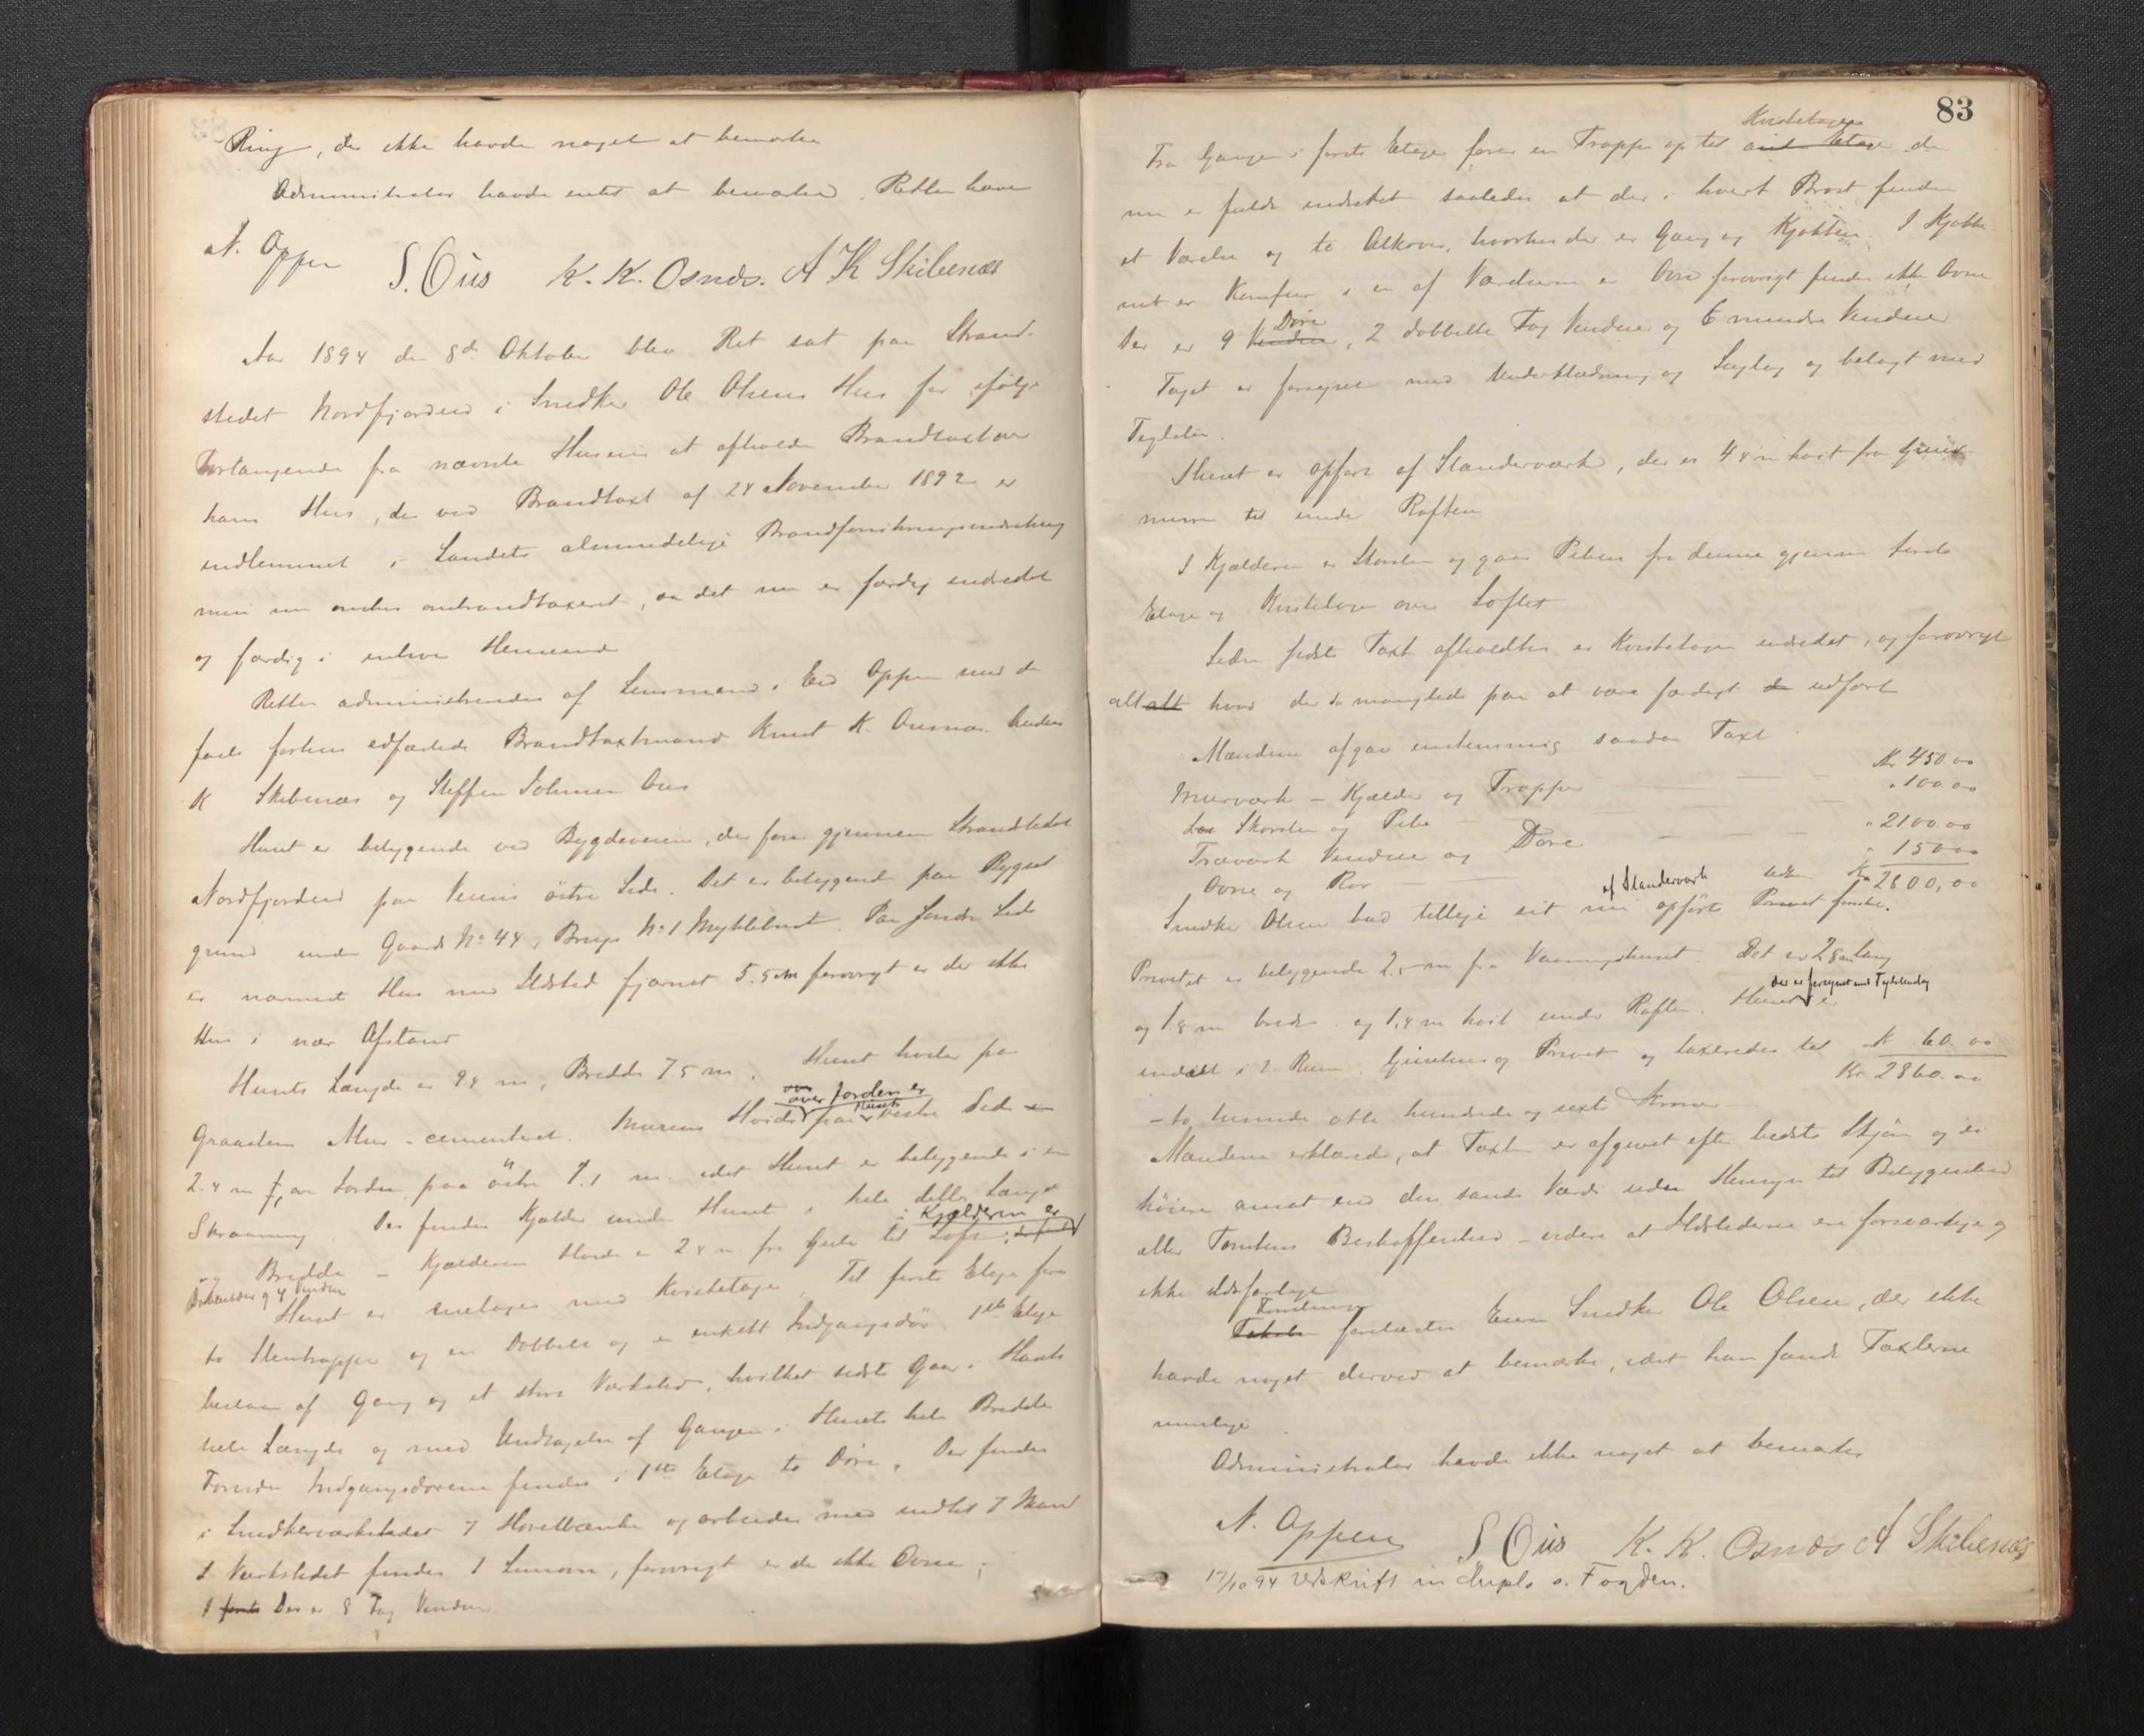 Ring, der ikke havde noget at bemærke
Administrator havde intet at bemærke. Retten hævet
N. Oppen S. Ous K. K. Osnæs. A K Skibenæs
Aar 1894 den 8de Oktober blev Ret sat paa Strand-
stedet Nordfjordeid i Snedker Ole Olsens Hus for ifølge
Forlangende fra nævnte Huseier at afholde Brandtaxt over
hans Hus, der ved Brandtaxt af 24 November 1892 er
indlemmet i Landets almindelige Brandforsikringsindretning
men nu ønskes ombrandtaxeret, da det nu er færdig indredet
og færdig i enhver Henseende
Retten administreredes af Lensmand i Eid Oppen med de
faste forhen edfæstede Brandtaxtmænd Knut K. Osnæs. Anders
K Skibenæs og Steffen Johnsen Ous
Huset er beliggende ved Bygdeveien, der fører gjennem Strandstedet
Nordfjordeid paa Veiens østre Side. Det er beliggende paa Bygsel
grund under Gaards No 44, Brugs No 1 Myklebust. Paa søndre Side
er nærmest Hus med Ildsted fjernet 5.5 m forøvrigt er der ikke
Hus i nær Afstand
Husets Længde er 9.4 m, Bredde 7.5 m. Huset hviler paa
over Jorden er
Graastens Mur - cementeret. Murens Høide paa Husets vestre Side er
2.4 m over Jorden paa østre 1.1 m idet Huset er beliggende i en
Skraaning. Der findes Kjelder under Huset i hele dettes Længde
i Kjælderen er
og Bredde - Kjælderens Høide er 2.4 m. fra Gulv til Loft
og 4 Vinduer
Huset er enetages med Kvistetage. Til første Etage fører
to Stentrapper og en dobbelt og en enkelt Indgangsdør. 1ste Etage
bestaar af Gang og et stort Værksted, hvilket sidste gaar i Husets
hele Længde og med Undtagelse af Gangen i Husets hele Bredde
Foruden Indgangsdørene findes i 1ste Etage to Døre. Der findes
i Snedkerværkstedet 7 Høvelbænke og arbeides med indtil 7 Mand
I Værkstedet findes 1 Limovn, forøvrigt er der ikke Ovne;
I første Der er 8 Fag Vinduer
83
Kvistetagen
Fra Gangen i første Etage fører en Trappe op til anden Etage der
nu er fuldt indredet saaledes at der i hvert Brøst findes
et Værelse og to Alkover, hvorhos der er Gang og Kjøkken. I Kjøkke
net er Komfur i en af Værelserne er Ovn forøvrigt findes ikke Ovne
Døre
Der er 9 Vinduer, 2 dobbelte Fag Vinduer og 6 mindre Vinduer
Taget er forsynet med Underklædning og Sutag og belagt med
Teglsten.
Huset er opført af Stenderværk, der er 4.4 m høit fra Grund
muren til under Raften
I Kjælderen er Skorsten og gaar Piben fra denne gjennem første
Etage og Kvistetagen over Loftet
Siden sidste Taxt afholdtes er Kvistetagen indredet, og forøvrigt
alt alt hvad der da manglede paa at være færdigt da udført
Mændene afgav enstemmig saadan Taxt
Murværk - Kjælder og Trapper Kr 450.00
Skorsten og Pibe " 100.00
Træværk Vinduer og Døre " 2100.00
Ovne og Rør " 150.00
Kr 2800,00
af Stenderværk
Snedker Olsen bad tillige sit nu opførte Privet forsikr.
Privetet er beliggende 2.- m fra Vaaningshuset. Det er 2.8 m lang
der er forsynet med Teglstentag
og 1.8 m bredt og 1,4 m høit under Raften. Huset er
inddelt i 2 Rum. Grisehus og Privet og taxeredes til K 60.00
Kr 2860.00
- to tusinde otte hundrede og sexti Kroner
Mændene erklærede, at Taxten er afgivet efter bedste Skjøn og ei
høiere ansat end den sande Værdi uden Hensyn til Beliggenhed
eller Tomtens Beskaffenhed - videre at Ildstederne ere forsvarlige og
ikke ildsfarlige
Forretningen
Taksten forelæstes Eieren Snedker Ole Olsen, der ikke
havde noget derved at bemærke, idet han fandt Taxterne
rimelige
Administrator havde ikke noget at bemærke
N. Oppen S Ous K. K. Osnæs A Skibenæs
17/10 94 Udskrift in duplo s. Fogden.